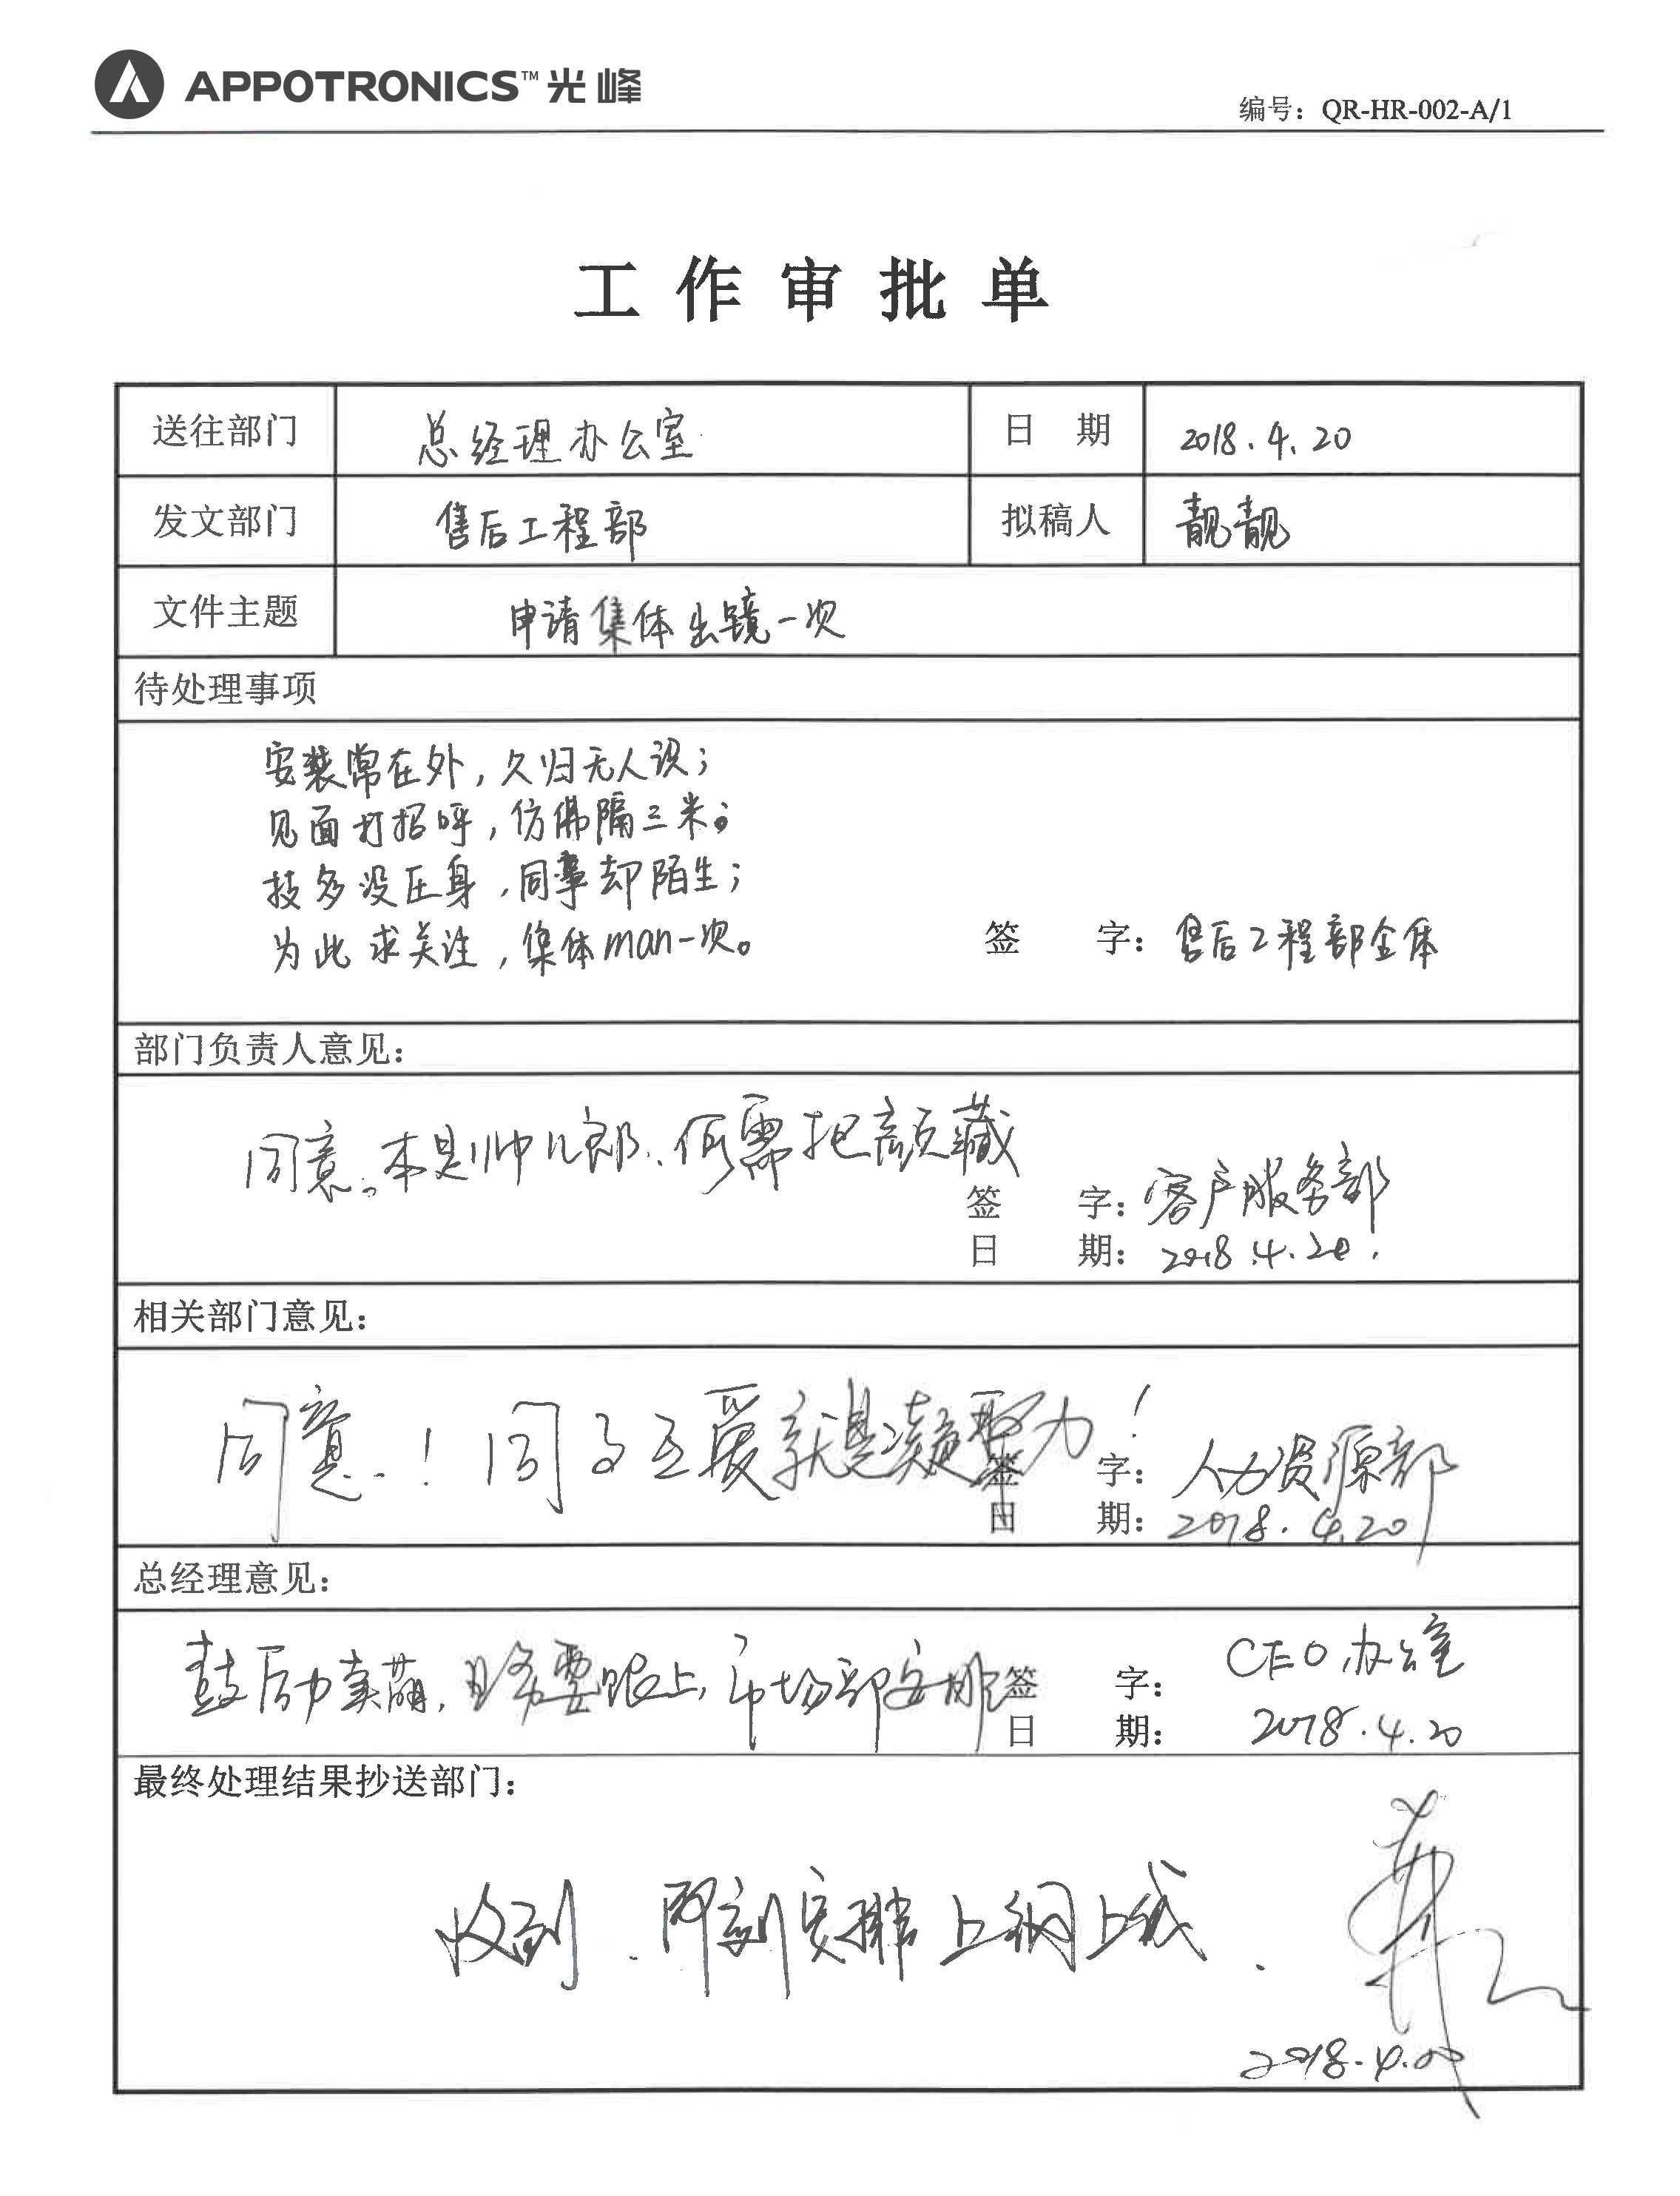 APPOTRONICS™光峰
编号：QR-HR-002-A/1
工作审批单
送往部门 总经理办公室 日 期 2018.4.20
发文部门 售后工程部 拟稿人 靓靓
文件主题 申请集体出镜一次
待处理事项
安装常在外，久归无人识；
见面打招呼，仿佛隔三米。
技多没压身，同事却陌生；
为此求关注，集体man一次。
签 字：售后工程部全体
部门负责人意见：
同意。本是帅儿郎，何需把颜藏
签 字：客户服务部
日 期：2018.4.20.
相关部门意见：
同意！同事互爱就是凝聚力！
签 字：人力资源部
日 期：2018.4.20
总经理意见：
鼓励卖萌，服务要跟上，市场部安排
签 字：CEO办公室
日 期：2018.4.20
最终处理结果抄送部门：
收到．即刻安排上纲上线．
2018.4.20